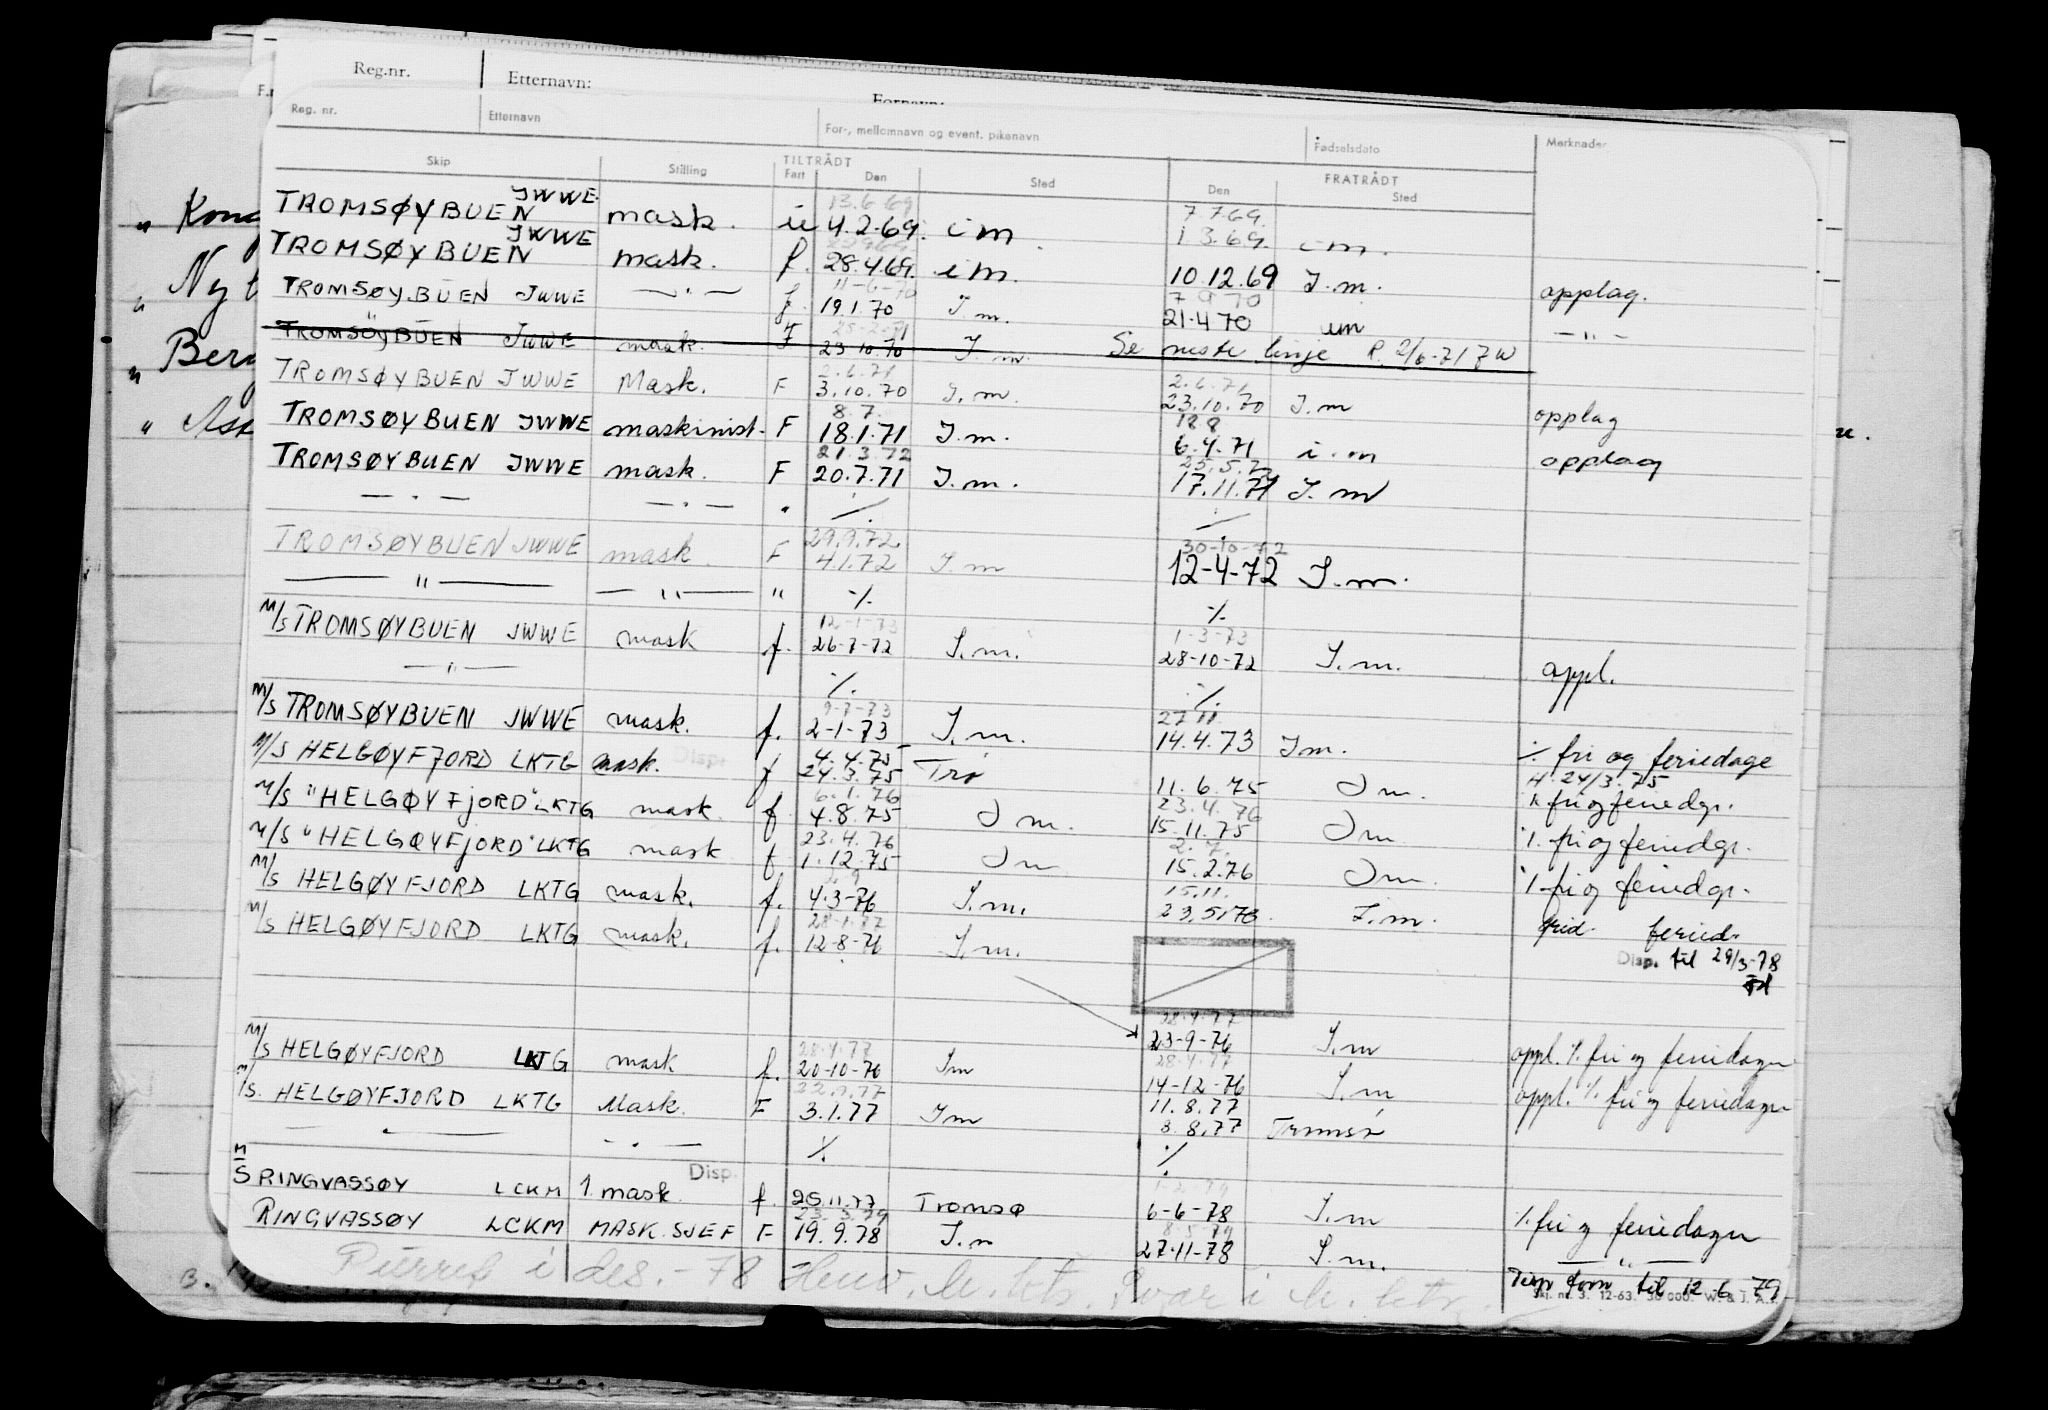 Reg.nr. Etternavn:
Fornavn:
Reg. nr. Etternavn For-, mellomnavn og event. pikenavn Fødselsdato Merknader
Skip Stilling TILTRÅDT FRATRÅDT
Fart Den Sted Den Sted
13.6.69 7.7.69.
„ Kong TROMSØYBUEN JWWE mask. u 4.2.69. i m 1 3.69. i m.
TROMSØYBUEN JWWE mask. f. 28.4.69. i m. 10.12.69 I.m. opplag.
„ Nyt
11-6-70 7 9 70
TROMSØYBUEN JWWE —"— f. 19.1.70 I m. 21.4 70 im —"—
25-2-71
TROMSÖYBUEN JWWE mask. F 23 10.70 I. m. Se neste linje R. 2/6-71 7W
„ Berg
2.6.71 2.6.71
TROMSØYBUEN JWWE Mask. F 3.10.70 I.m. 23.10.70 I.m opplag
8.7. 18 8
„ Ask TROMSØYBUEN JWWE maskinist. F 18.1.71 I.m. 6.4.71 i.m opplag
21.3.72 25.5.72
TROMSØYBUEN JWWE mask. F 20.7.71 I.m. 17.11.71 I.m
— " — — " — " ./. ./.
29.9.72 30-10-72
TROMSØYBUEN JWWE mask. F 4.1.72 I.m 12-4-72 I.m.
— " — — " — " ./. ./.
12-1-73 1-3-73
M/S TROMSØYBUEN JWWE mask f. 26-7-72 I.m. 28-10-72 I.m. oppl.
— " — ./. ./.
9-7-73 27 11
M/S TROMSØYBUEN JWWE mask. f. 2-1-73 I.m. 14.4.73 I m. ./. fri og feriedage
Disp. 4.4.75 H. 24/3.75
M/S HELGØYFJORD LKTG mask. f 24.3.75 Trø 11.6.75 I m. ./. fri og feriedgr.
6.1.76 23.4.76
M/S "HELGØYFJORD" LKTG mask. f. 4.8.75 I m. 15.11.75 I m ./. fri og feriedgr.
23.4.76 2.7.
M/S "HELGØYFJORD" LKTG mask f 1.12.75 I m 15.2.76 I m. ./. fri og feriedgr.
15.11.
M/S HELGØYFJORD LKTG mask. f. 4.3-76 I.m. 23.5.76. I.m. frid. feried.
28-1-77
M/S HELGØYFJORD LKTG mask. f. 12-8-76 I.m. Disp. til 29/3-78
28.4.77
23-9-76 I.m oppl. ./. fri og feriedager
28.4.77 28.4.77
M/S HELGØYFJORD LKTG mask f. 20-10-76 I m 14-12-76 I.m oppl. ./. fri og feriedager
22.9.77 11.8.77
M/S. HELGØYFJORD LKTG Mask. F 3.1.77 I m 8.8.77 Tromsø
— " — — " — ./. ./.
Disp.
M/S RINGVASSØY LCKM 1. mask. f. 25.11.77 Tromsø 6-6-78 I.m ./. fri og feriedager
23.3.79 8.5.79
RINGVASSØY LCKM MASK.SJEF F 19.9.78 I.m 27-11-78 I.m. — " —
Disp form til 12.6.79
Skj. nr. 3. 12-63. 30 000. W. & J. A.s.
Purret i des.-78